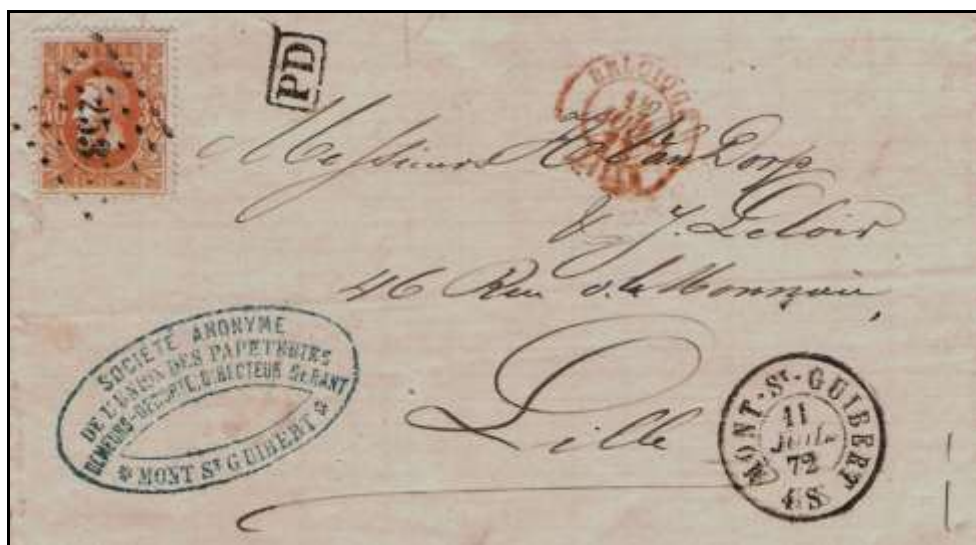 253
PD
BELGIQUE
Messieurs H. Van Dorp
& J. Deloir
46 Rue de la Monnaie,
Lille
SOCIÉTÉ ANONYME
DE L'UNION DES PAPETERIES
DIRECTEUR GÉRANT
MONT ST GUIBERT
MONT-ST-GUIBERT
11
JUIL
72
4 S